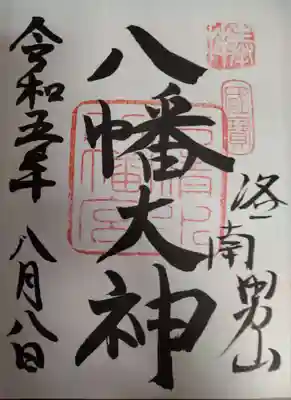 奉拝
国宝
洛南男山
八幡大神
石清水八幡宮
令和五年八月八日